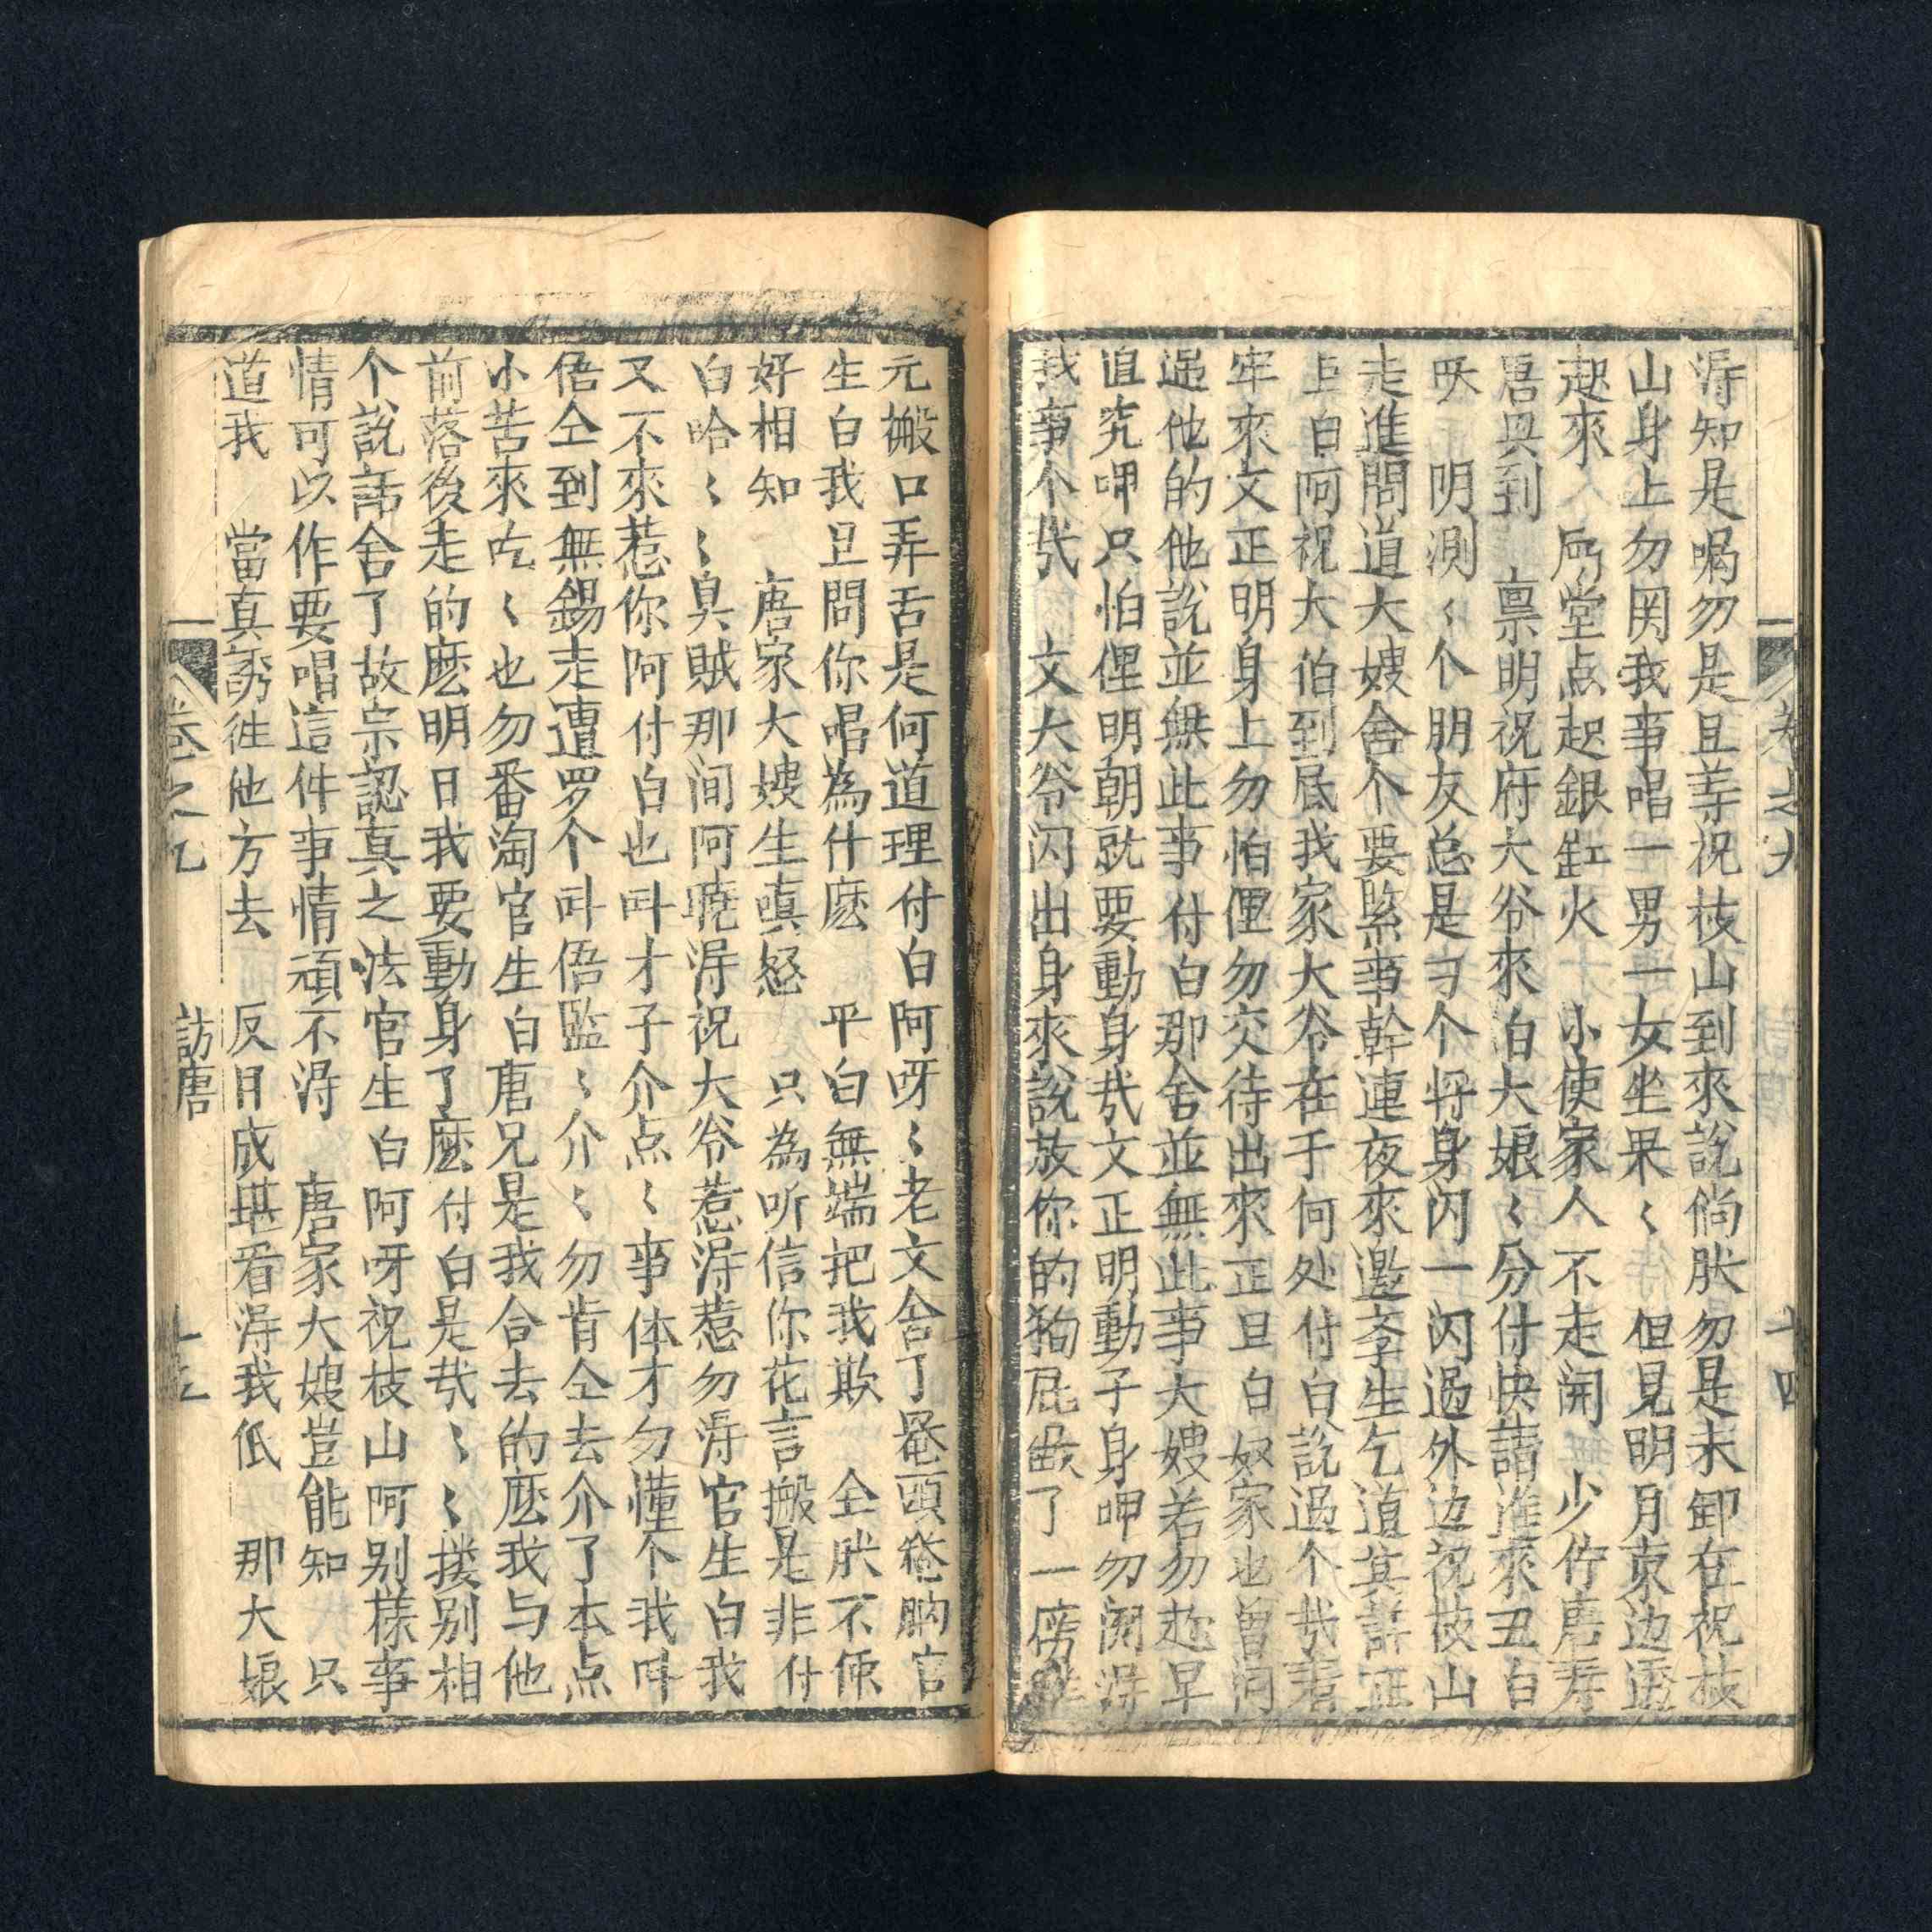 淂知是喝勿是且等祝枝山到來說倘肰勿是未卸在祝枝
山身上勿罔我事唱一男一女坐果〻　但見明月東边透
起來　　啇堂点起銀缸火　小使家人不走開　少佇唐寿
唐興到　禀明祝府大爷來白大娘〻分付快請進來丑白
㕵　明測〻个朋友总是弓个将身闪一闪過外边祝枝山
走進問道大嫂舍个要緊事幹連夜來邀李生乞道其詳正
上白阿祝大伯到底我家大爷在于何处付白說過个㢤若
牢來文正明身上勿怕俚勿交待出來正旦白奴家也曾问
過他的他說並無此事付白那舍並無此事大嫂若勿趂早
追究呷只怕俚明朝就要動身㢤文正明動子身呷勿関淂
我事个㢤　文大爷闪出身來說放你的狗屁做了一榜
卷之九　十四
元搬口弄舌是何道理付白阿呀〻老文舍了罨頭　　言
生白我旦問你唱為什麽　平白無端把我欺　全肰不便
好相知　唐家大嫂生嗔怒　只為听信你花言搬是非付
白哈〻〻臭賊那间阿曉淂祝大爷惹淂惹勿淂官生白我
又不來惹你阿付白也呌才子介点〻事体才勿懂个我呌
俉仝到無錫走遭罗个呌俉監〻介〻勿肯仝去介了本点
小苦來吃〻也勿番淘官生白唐兄是我合去的麽我与他
前落後走的麽明日我要動身了麽付白是㢤〻〻搂别相
个說話舍了故宗認真之法官生白阿呀祝枝山阿别樣事
情可以作要唱這件事情頑不淂　唐家大嫂豈能知　只
道我　當真誘徃他方去　反目成堪看淂我低　那大娘
卷之九　訪唐　十五